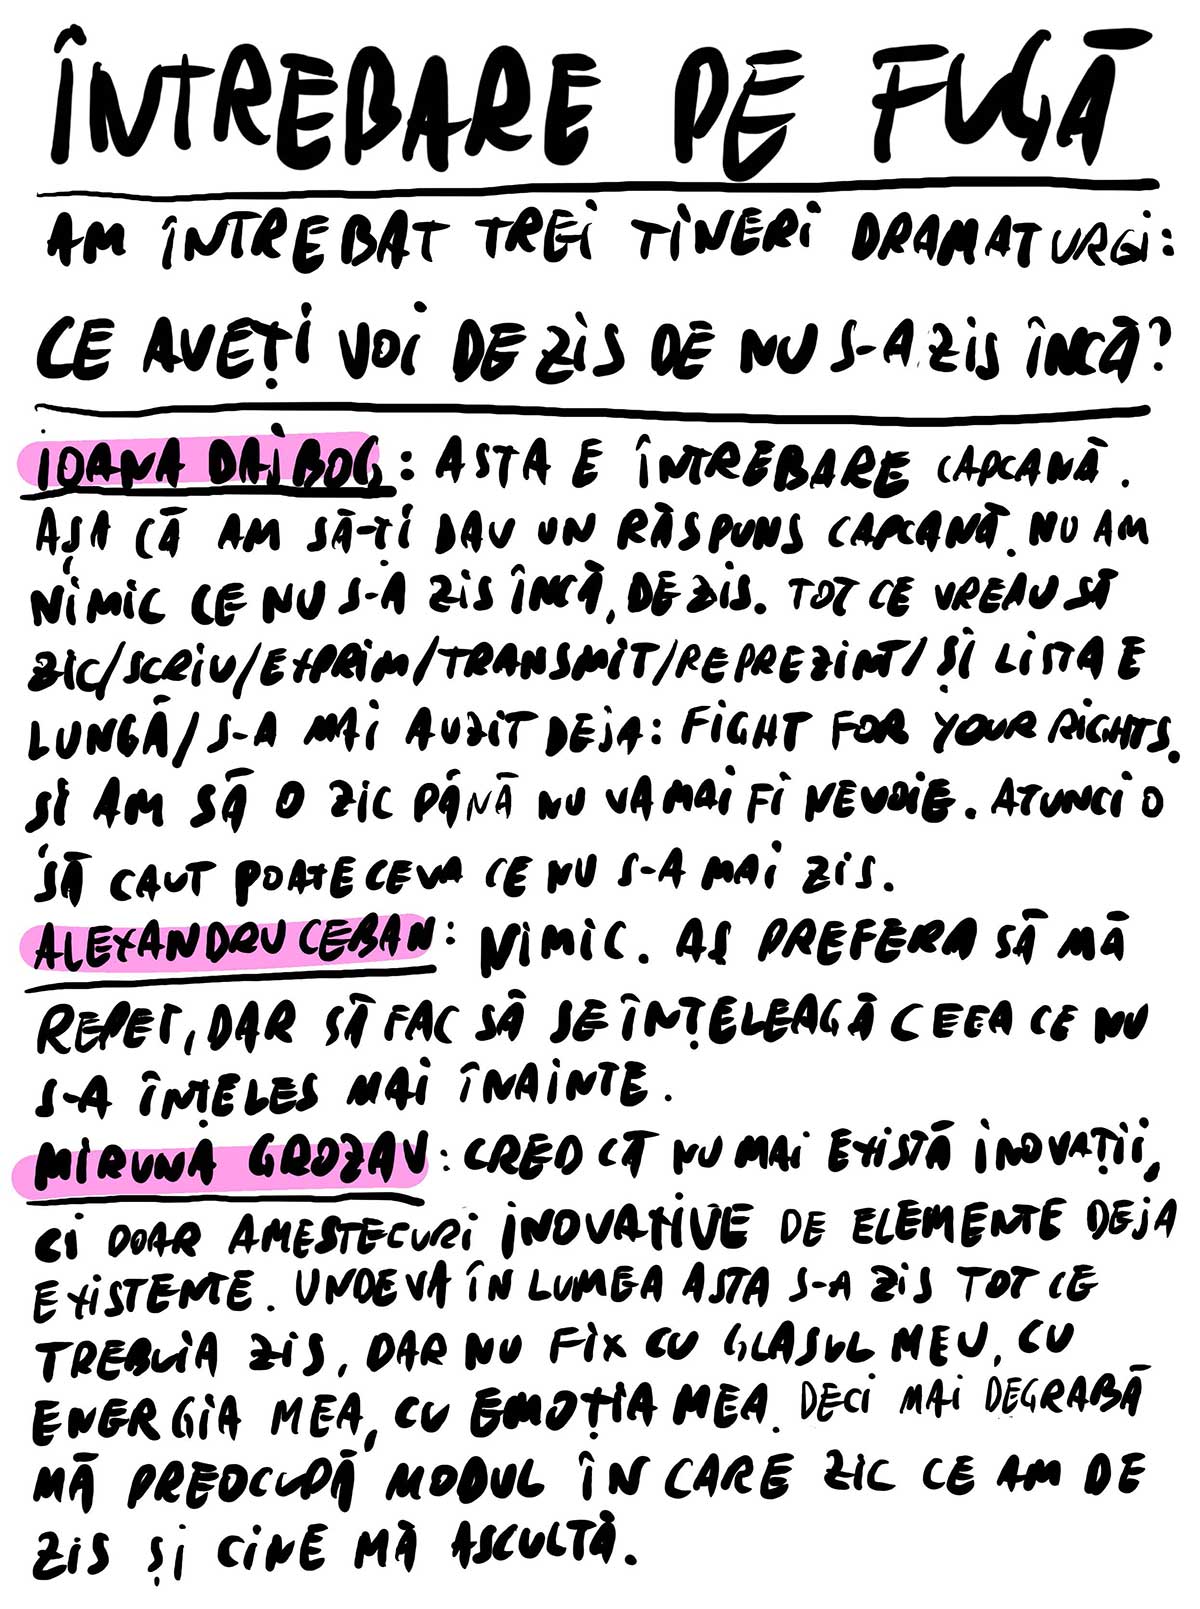 ÎNTREBARE DE FUGĂ
AM ÎNTREBAT TREI TINERI DRAMATURGI:
CE AVEȚI VOI DE ZIS DE NU S-A ZIS ÎNCĂ?
IOANA DAIBOG: ASTA E ÎNTREBARE CAPCANĂ.
AȘA CĂ AM SĂ-ȚI DAU UN RĂSPUNS CAPCANĂ. NU AM
NIMIC CE NU S-A ZIS ÎNCĂ, DE ZIS. TOT CE VREAU SĂ
ZIC/SCRIU/EXPRIM/TRANSMIT/REPREZINT/ȘI LISTA E
LUNGĂ/S-A MAI AUZIT DEJA: FIGHT FOR YOUR RIGHTS.
SI AM SĂ O ZIC PÂNĂ NU VA MAI FI NEVOIE. ATUNCI O
SĂ CAUT POATE CEVA CE NU S-A MAI ZIS.
ALEXANDRU CEBAN: NIMIC. AȘ PREFERA SĂ MĂ
REPET, DAR SĂ FAC SĂ SE ÎNȚELEAGĂ CEEA CE NU
S-A ÎNȚELES MAI ÎNAINTE.
MIRUNA GROZAV: CRED CĂ NU MAI EXISTĂ INOVAȚII,
CI DOAR AMESTECURI INOVATIVE DE ELEMENTE DEJA
EXISTENTE. UNDEVA ÎN LUMEA ASTA S-A ZIS TOT CE
TREBUIA ZIS, DAR NU FIX CU GLASUL MEU, CU
ENERGIA MEA, CU EMOȚIA MEA. DECI MAI DEGRABĂ
MĂ PREOCUPĂ MODUL ÎN CARE ZIC CE AM DE
ZIS ȘI CINE MĂ ASCULTĂ.